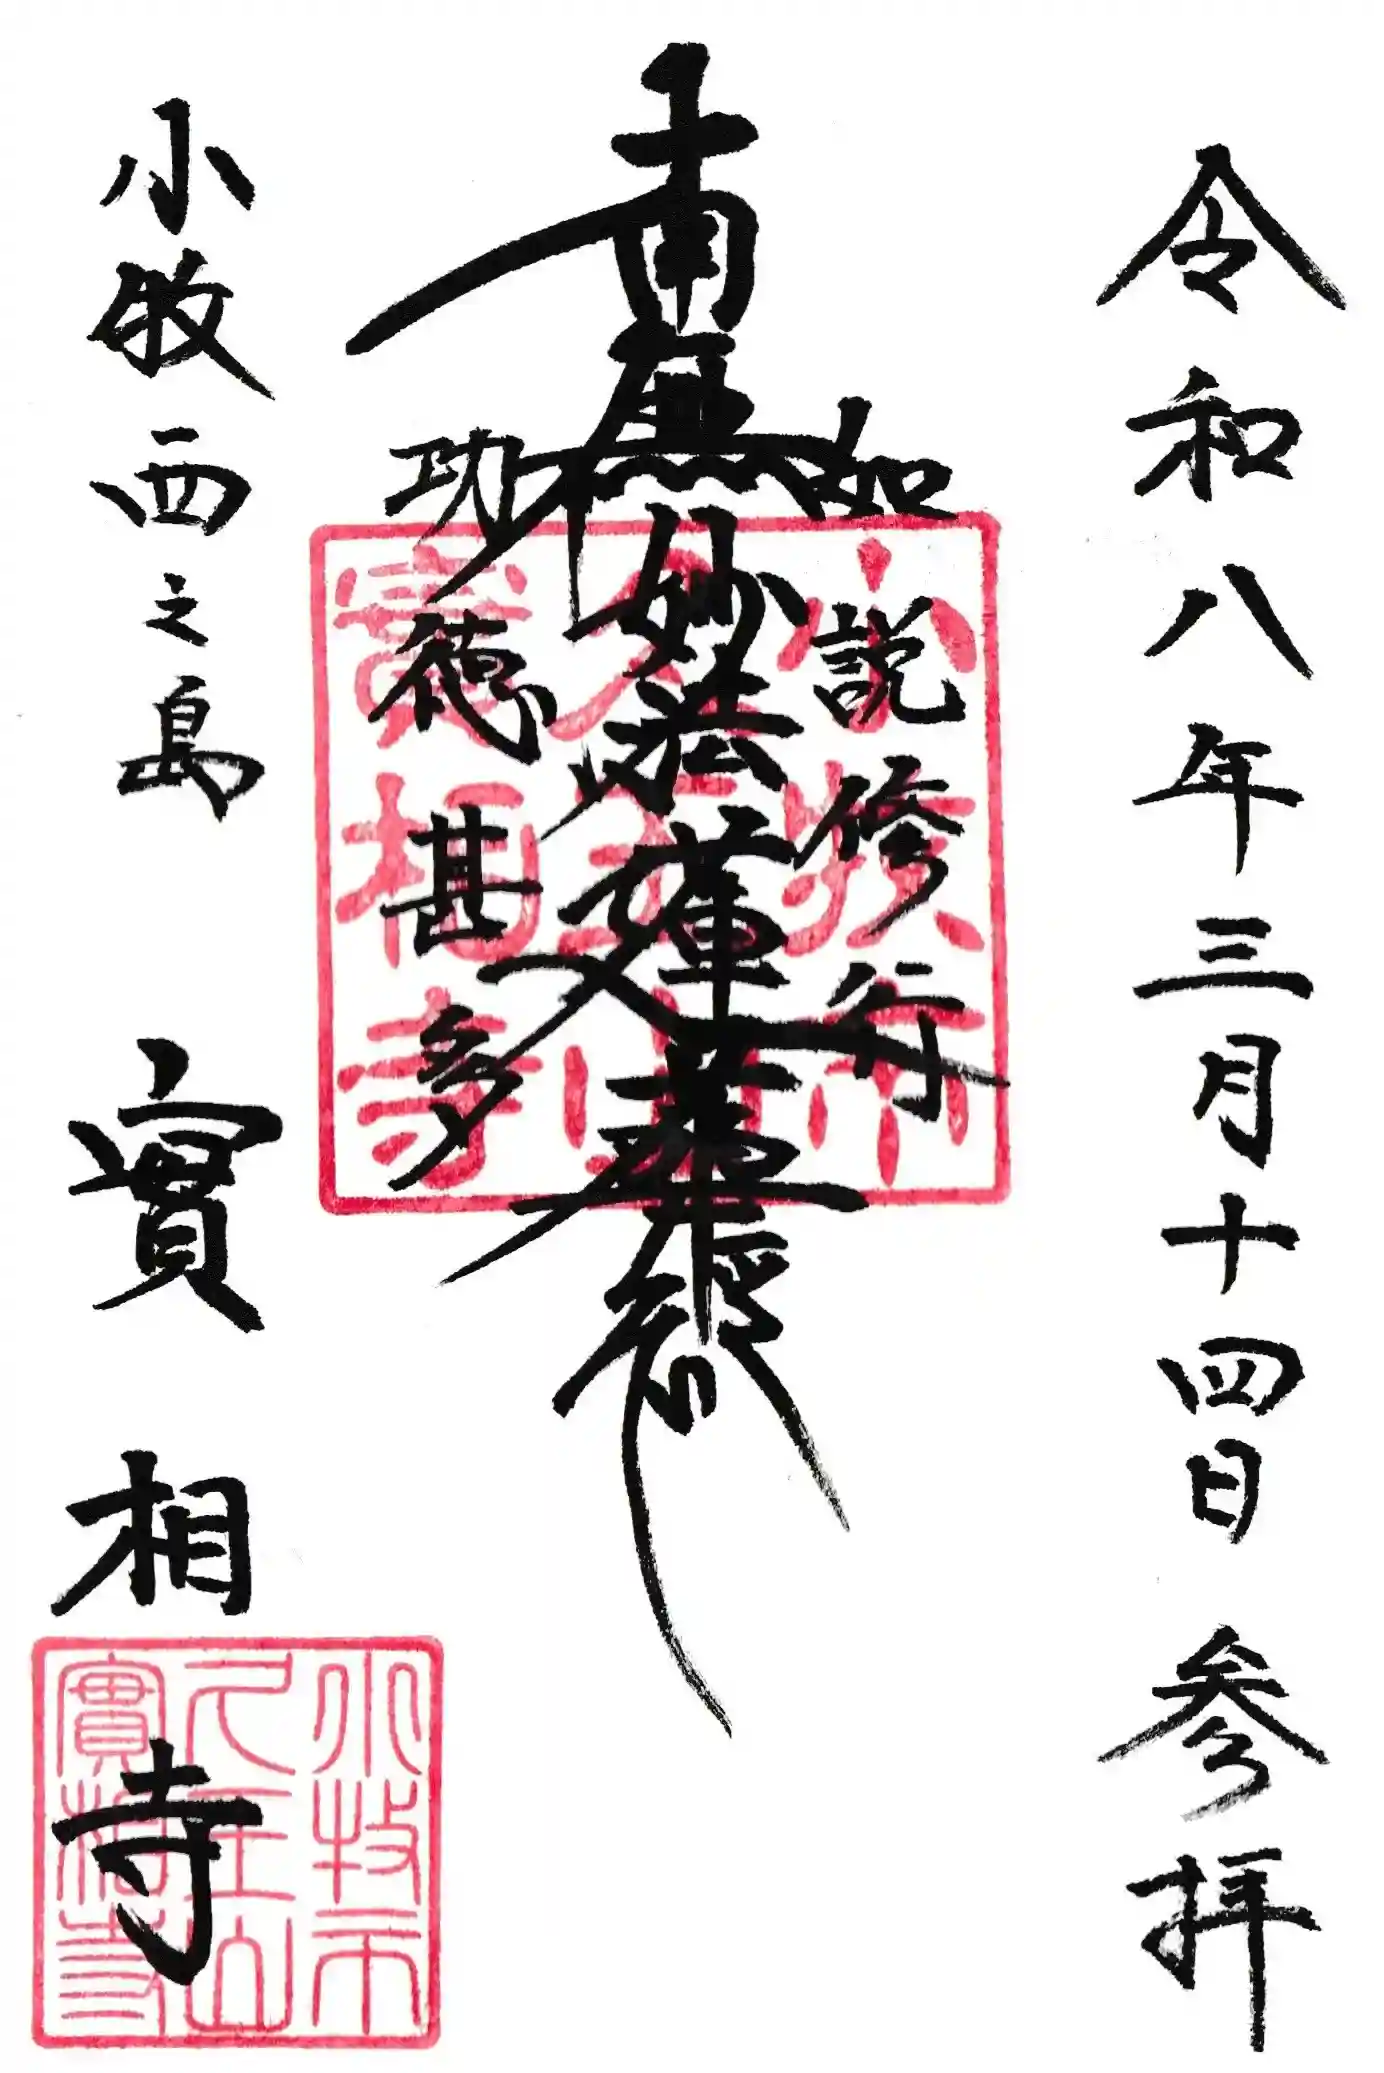 令和八年三月十四日 参拝
如説修行
南無妙法蓮華経
功徳甚多
小牧西之島 實相寺
小牧市
久玉山
實相寺
小牧市
久玉山
實相寺